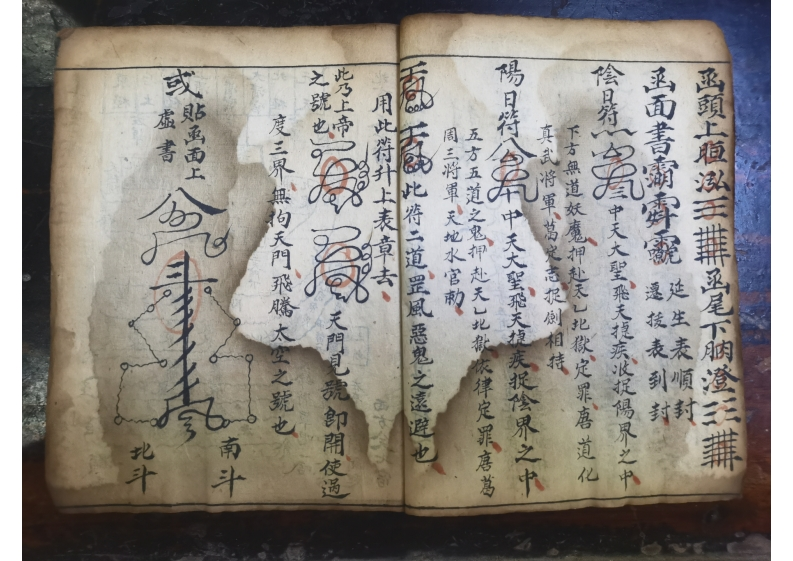 函頭上
函尾下
澄
函面書
延生表順封
遷拔表到封
陰日符
中天大聖飛天捷疾收捉陽界之中
下方無道妖魔押赴天乚北獄定罪唐道化
真武將軍葛定志捉劍相持
陽日符
中天大聖飛天捷疾捉陰界之中
五方五道之鬼押赴天乚北獄依律定罪唐葛
周三將軍天地水官勅
此符二道罡風惡鬼之遠避也
用此符升上表章去
此乃上帝
之號也
天門見號即開使過
度三界無拘天門飛騰太空之號也
或
貼函面上
虛書
南斗
北斗